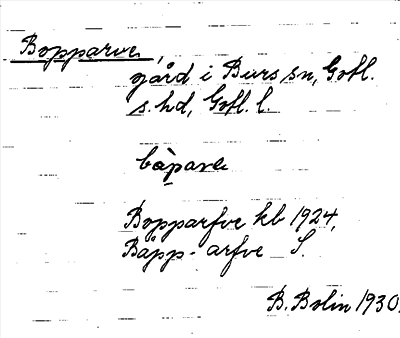 Bopparve,
gård i Burs sn, Gotl.
s. hd, Gotl. l.
bàparve
Bopparfve kb 1924,
Båpp-arfve S.
B. Bolin 1930.